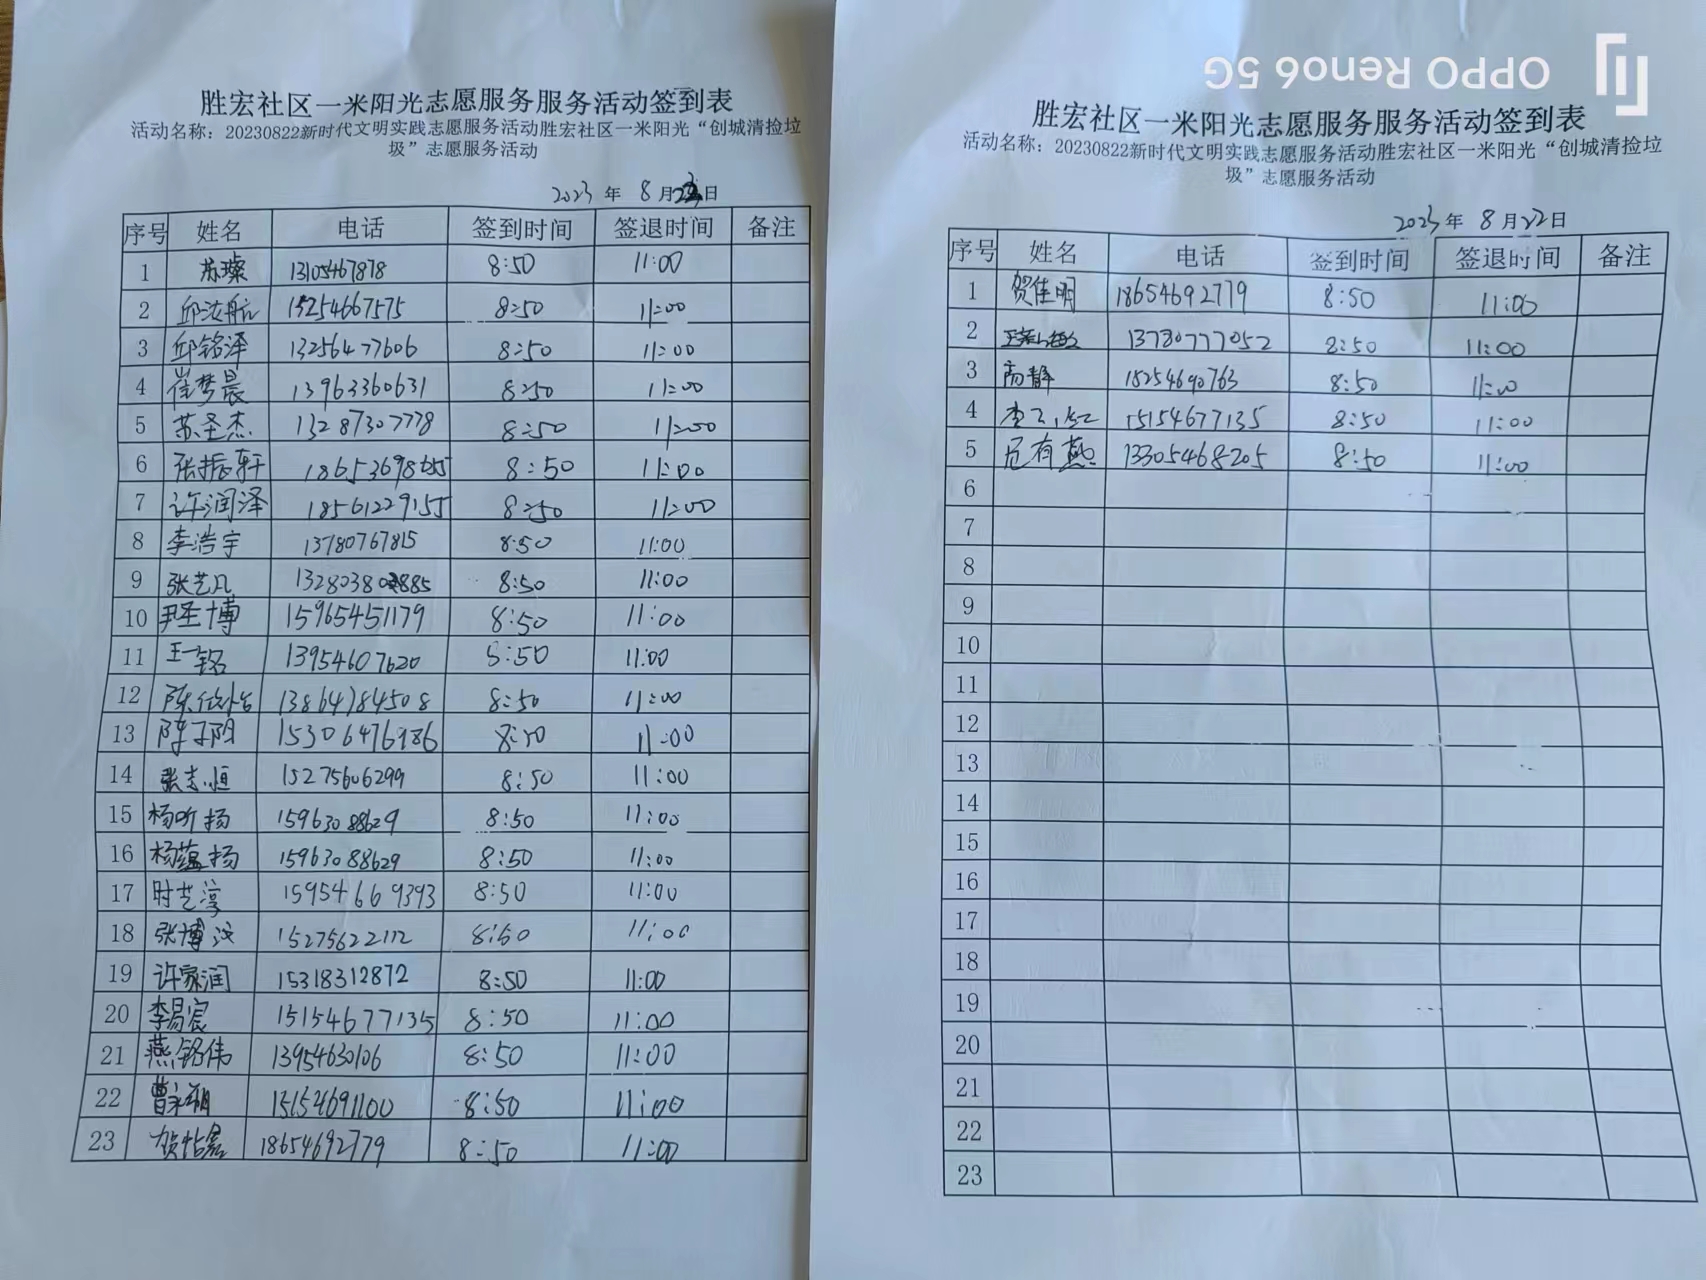 胜宏社区一米阳光志愿服务服务活动签到表
活动名称：20230822新时代文明实践志愿服务活动胜宏社区一米阳光“创城清捡垃
圾”志愿服务活动
2023 年 8 月 日
序号 姓名 电话 签到时间 签退时间 备注
1 苏璨 13105467878 8:50 11:00
2 邱法航 15254667575 8:50 11:00
3 邱铭泽 13256477606 8:50 11:00
4 崔梦晨 13963360631 8:50 11:00
5 苏圣杰 13287307778 8:50 11:00
6 张振轩 18653698655 8:50 11:00
7 许润泽 18561229155 8:50 11:00
8 李浩宇 13780767815 8:50 11:00
9 张艺凡 8:50 11:00
10 尹圣博 15965451179 8:50 11:00
11 王一铭 13954607620 8:50 11:00
12 陈 13864784508 8:50 11:00
13 陈子阳 15306476986 8:50 11:00
14 张志恒 15275606299 8:50 11:00
15 杨昕扬 15963088629 8:50 11:00
16 杨蕴扬 15963088629 8:50 11:00
17 时艺淳 15954669393 8:50 11:00
18 张博汶 15275622112 8:50 11:00
19 许家润 15318312872 8:50 11:00
20 李易宸 15154677135 8:50 11:00
21 燕铭伟 13954630106 8:50 11:00
22 曹 15154691100 8:50 11:00
23 贺怡鑫 18654692779 8:50 11:00
OPPO Reno6 5G
胜宏社区一米阳光志愿服务服务活动签到表
活动名称：20230822新时代文明实践志愿服务活动胜宏社区一米阳光“创城清捡垃
圾”志愿服务活动
2023 年 8 月 22 日
序号 姓名 电话 签到时间 签退时间 备注
1 贺佳明 18654692779 8:50 11:00
2 13780777052 8:50 11:00
3 高静 15254690763 8:50 11:00
4 李 15154677135 8:50 11:00
5 尼有燕 13305468205 8:50 11:00
6
7
8
9
10
11
12
13
14
15
16
17
18
19
20
21
22
23